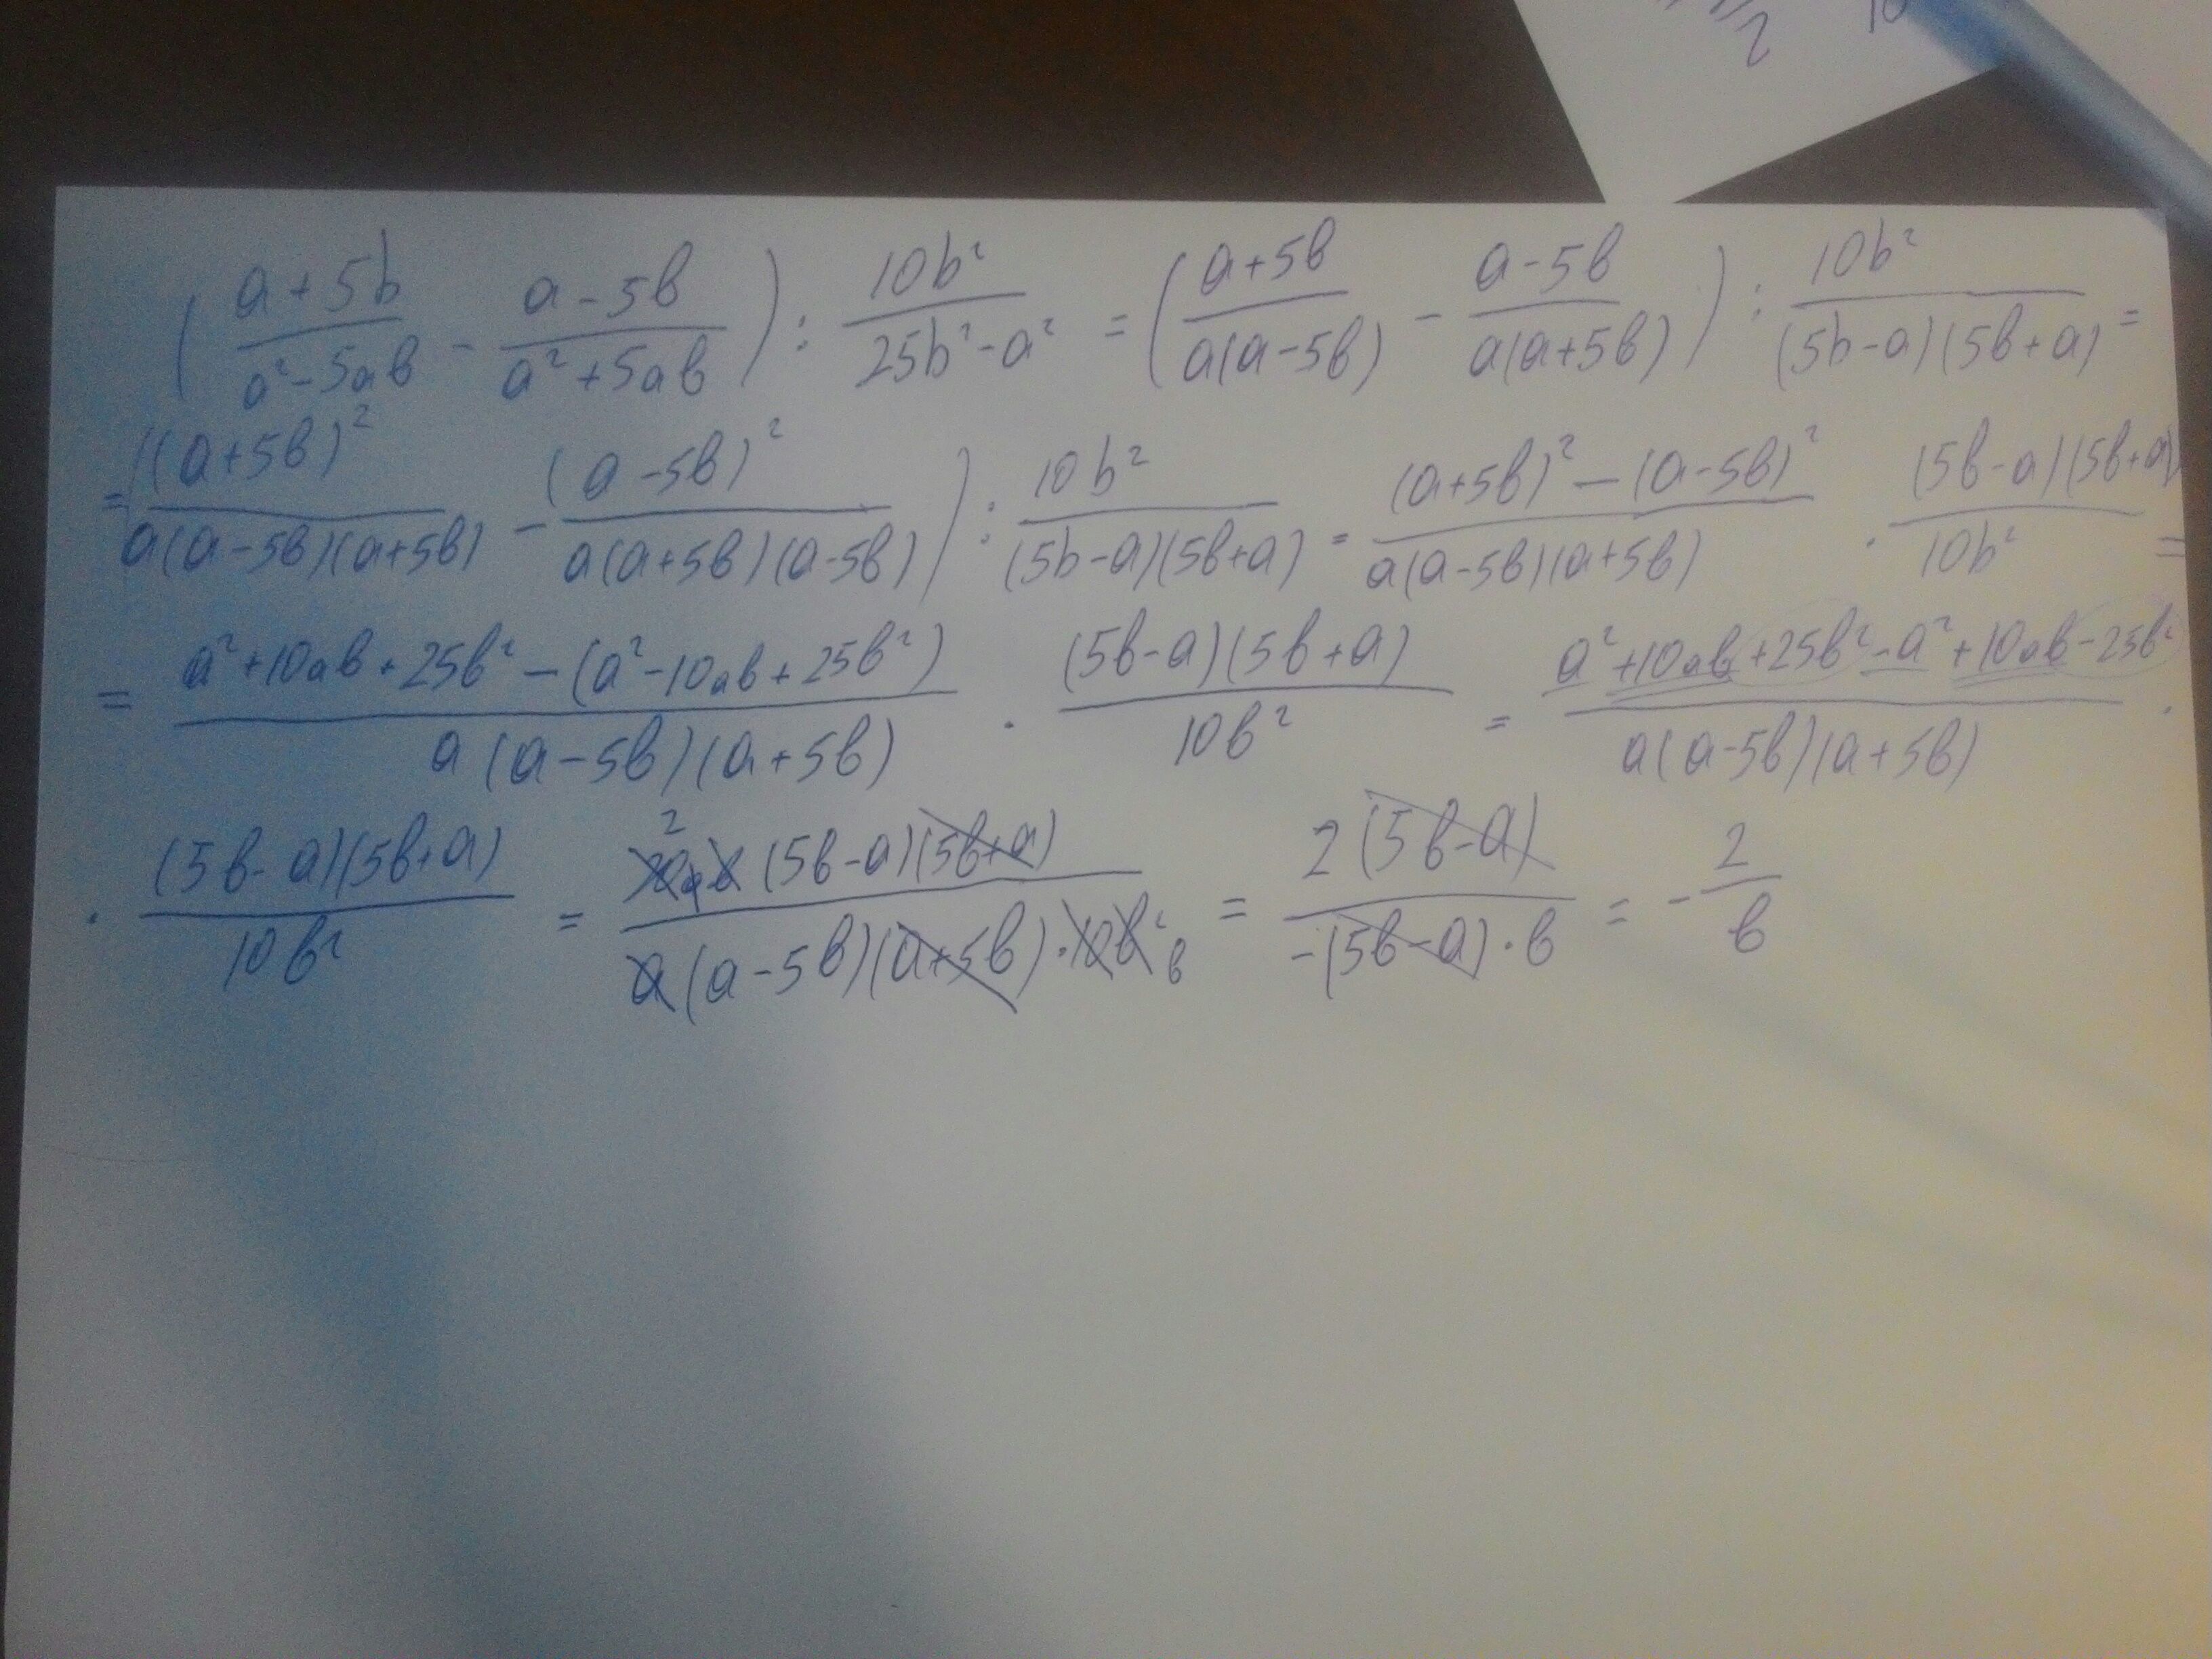 1/2 10
( (a+5b)/(a²-5ab) - (a-5b)/(a²+5ab) ) : 10b²/(25b²-a²) = ( (a+5b)/(a(a-5b)) - (a-5b)/(a(a+5b)) ) : 10b²/((5b-a)(5b+a)) =
= ( (a+5b)²/(a(a-5b)(a+5b)) - (a-5b)²/(a(a+5b)(a-5b)) ) : 10b²/((5b-a)(5b+a)) = ((a+5b)² - (a-5b)²)/(a(a-5b)(a+5b)) · ((5b-a)(5b+a))/10b² =
= (a²+10ab+25b² - (a²-10ab+25b²))/(a(a-5b)(a+5b)) · ((5b-a)(5b+a))/10b² = (a²+10ab+25b²-a²+10ab-25b²)/(a(a-5b)(a+5b)) ·
· ((5b-a)(5b+a))/10b² = (20ab 2 (5b-a)(5b+a))/(a(a-5b)(a+5b)·10b² b) = 2(5b-a)/(-(5b-a)·b) = -2/b